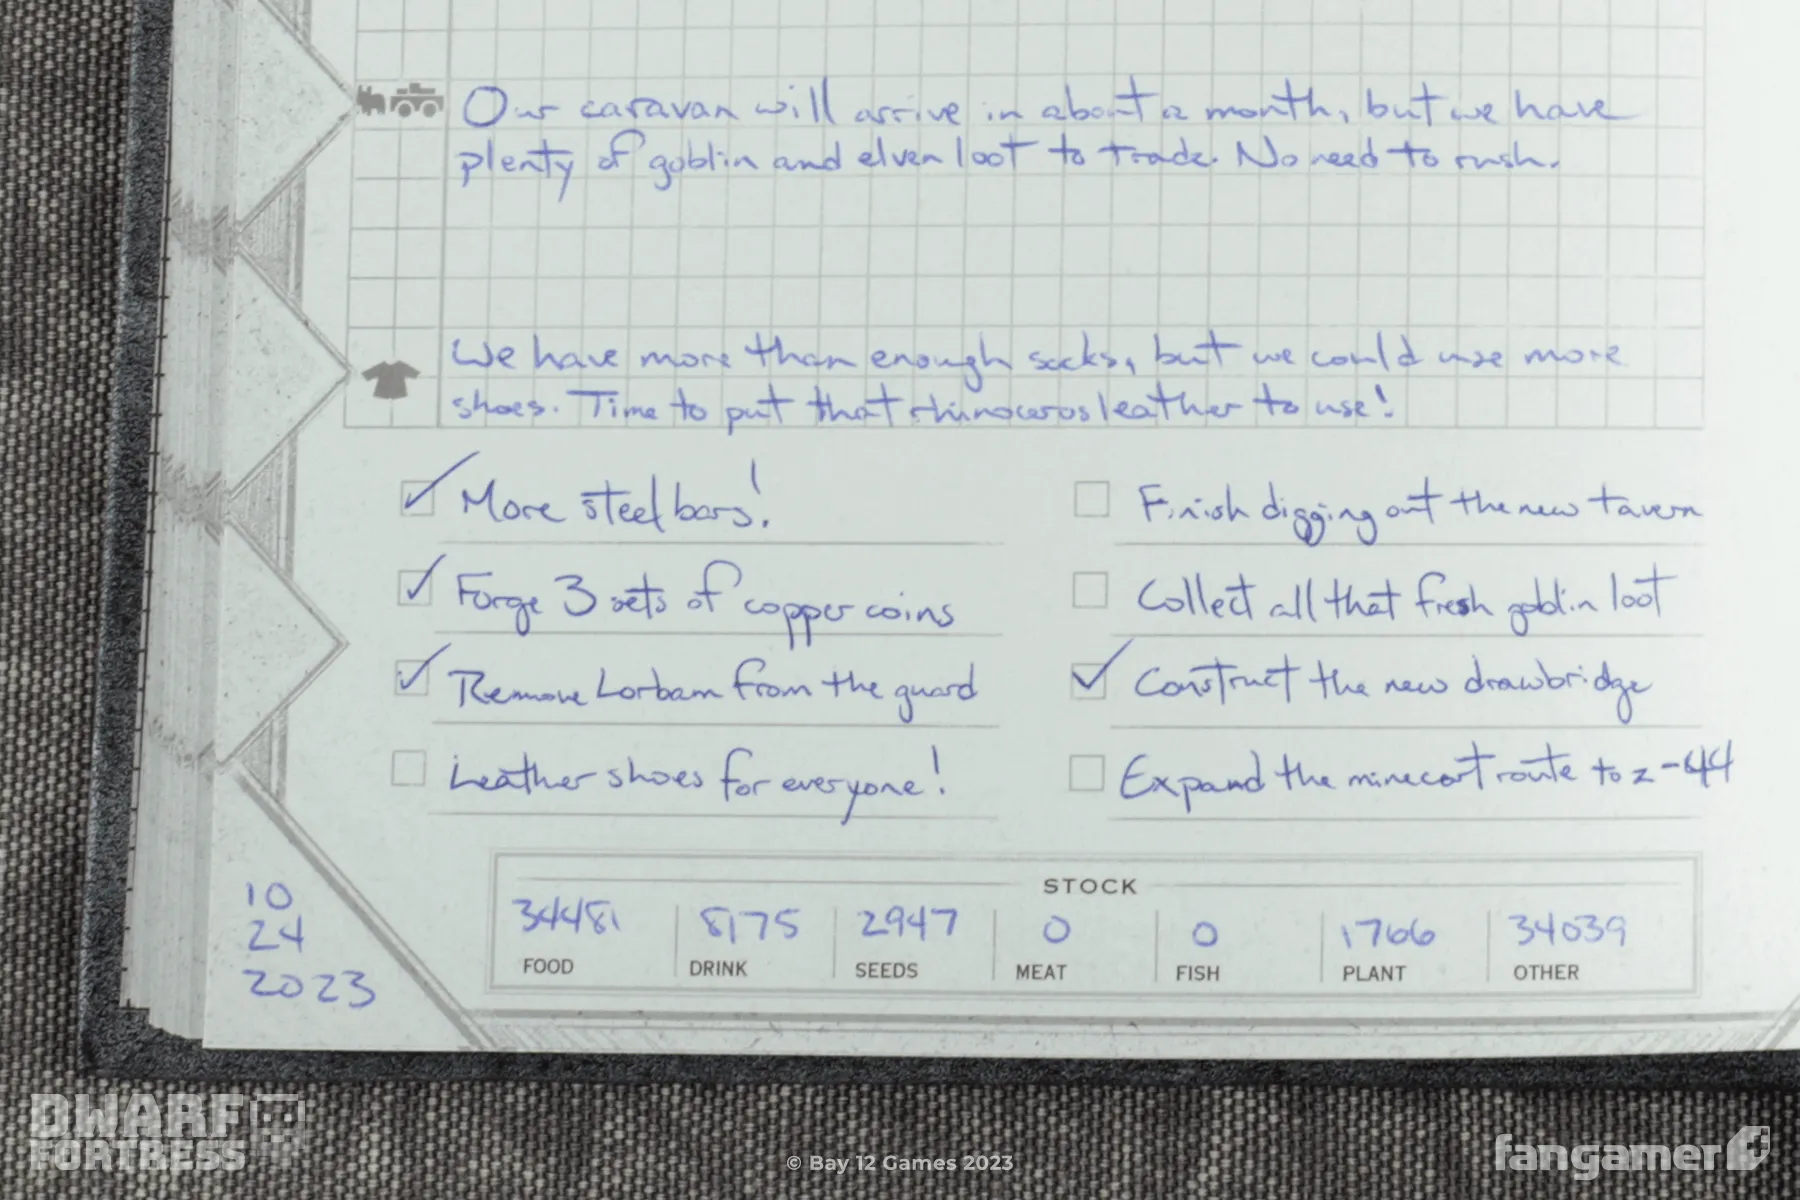 Our caravan will arrive in about a month, but we have
plenty of goblin and elven loot to trade. No need to rush.
We have more than enough socks, but we could use more
shoes. Time to put that rhinoceros leather to use!
More steel bars!
Forge 3 sets of copper coins
Remove Lorbam from the guard
Leather shoes for everyone!
Finish digging out the new tavern
Collect all that fresh goblin loot
Construct the new drawbridge
Expand the minecart route to z-44
10
24
2023
STOCK
34481 8175 2947 0 0 1766 34039
FOOD DRINK SEEDS MEAT FISH PLANT OTHER
DWARF
FORTRESS
© Bay 12 Games 2023
fangamer